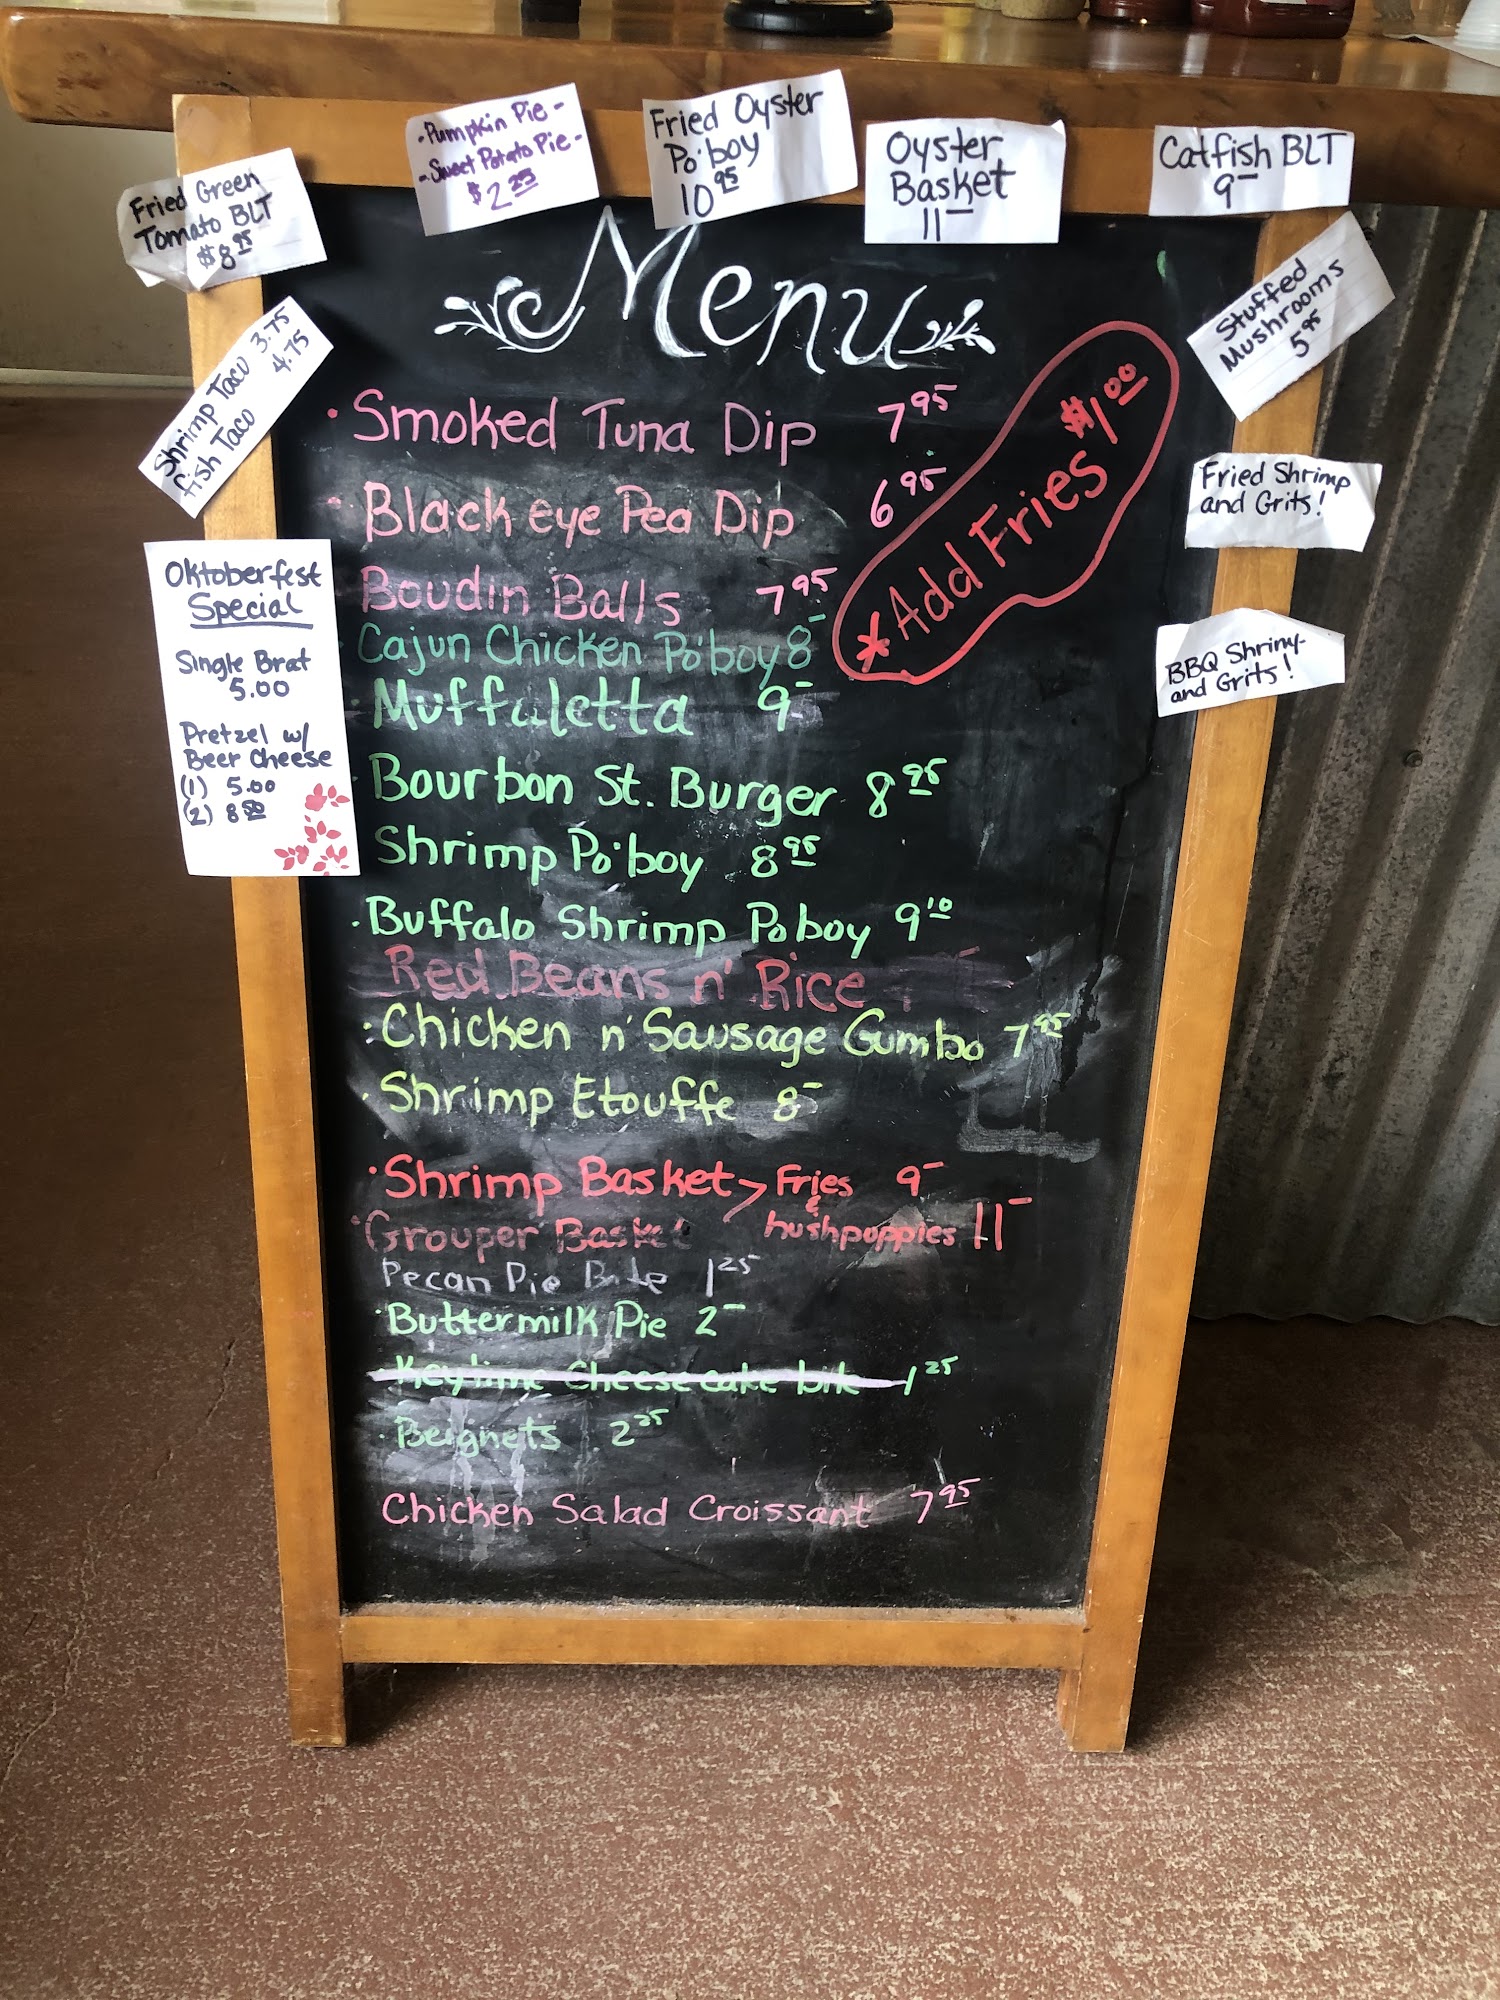 Fried Green
Tomato BLT
$8.95
-Pumpkin Pie-
-Sweet Potato Pie-
$2.25
Fried Oyster
Po'boy
10.95
Oyster
Basket
11-
Catfish BLT
9-
Shrimp Taco 3.75
fish Taco 4.75
Stuffed
Mushrooms
5.95
Fried Shrimp
and Grits!
BBQ
and Grits!
Oktoberfest
Special
Single Brat
5.00
Pretzel w/
Beer Cheese
(1) 5.00
(2) 8.50
Menu
*Add Fries $1.00
• Smoked Tuna Dip 7.95
• Black eye Pea Dip 6.95
Boudin Balls 7.95
Cajun Chicken Po'boy 8-
• Muffuletta 9-
Bourbon St. Burger 8.95
Shrimp Po'boy 8.95
• Buffalo Shrimp Poboy 9.10
Red Beans n' Rice
• Chicken n' Sausage Gumbo 7.95
• Shrimp Etouffe 8-
• Shrimp Basket > Fries 9-
&
• Grouper Basket hushpuppies 11-
Pecan Pie Bite 1.25
• Buttermilk Pie 2-
Keylime Cheesecake bite 1.25
• Beignets 2.25
Chicken Salad Croissant 7.95